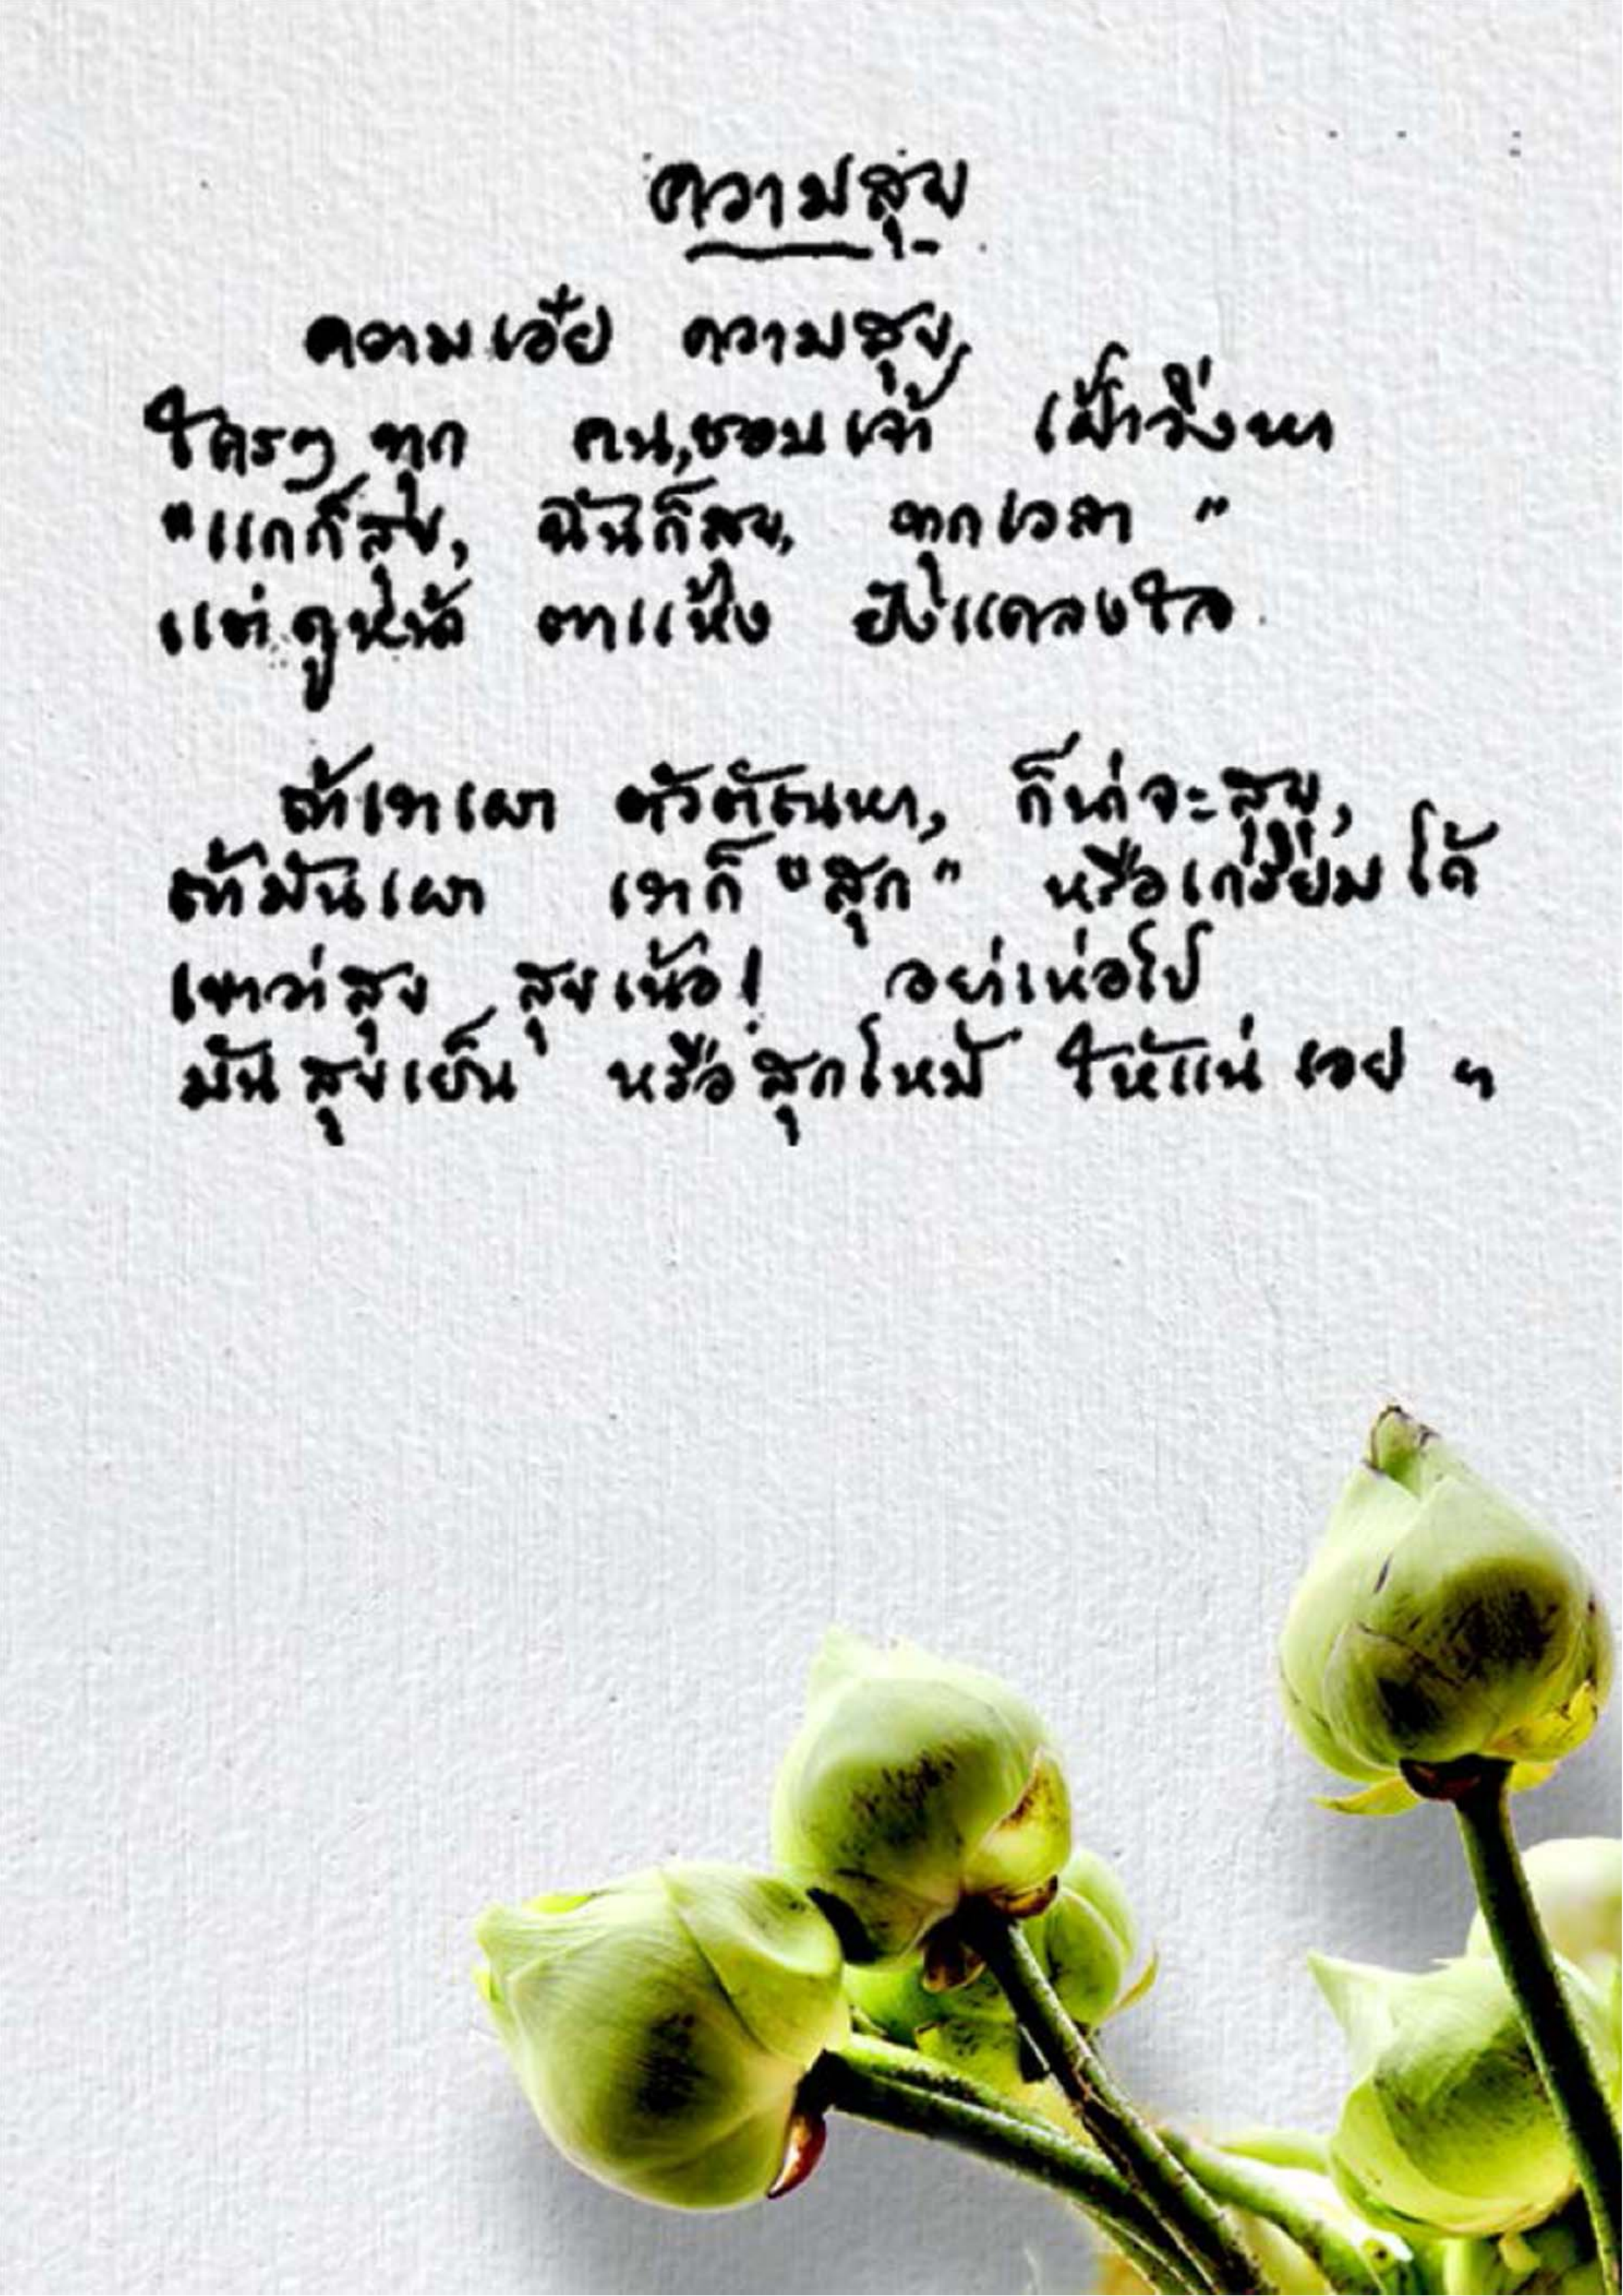 ความสุข
ความเอ๋ย ความสุข
ใครๆ ทุก คน, ชอบเจ้า เฝ้าวิ่งหา
"แกก็สุข, ฉันก็สุข, ทุกเวลา"
แต่ดูหน้า ตาแห้ง ยังแคลงใจ
ถ้าเราเผา ตัวตัณหา, ก็น่าจะสุข,
ถ้ามันเผา เราก็ "สุก" หรือเกรียมได้
เขาว่าสุข สุขเน้อ! อย่าเห่อไป
มันสุขเย็น หรือสุกไหม้ ให้แน่ เอย ฯ